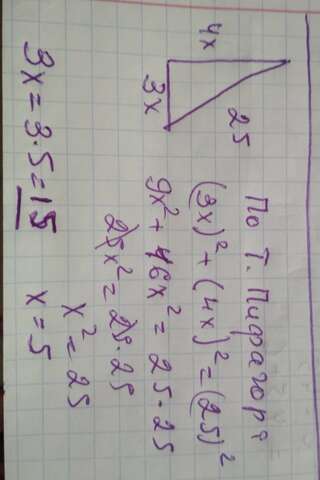 4x
25
3x
По т. Пифагора
(3x)² + (4x)² = (25)²
9x² + 16x² = 25·25
25x² = 25·25
x² = 25
x = 5
3x = 3·5 = 15